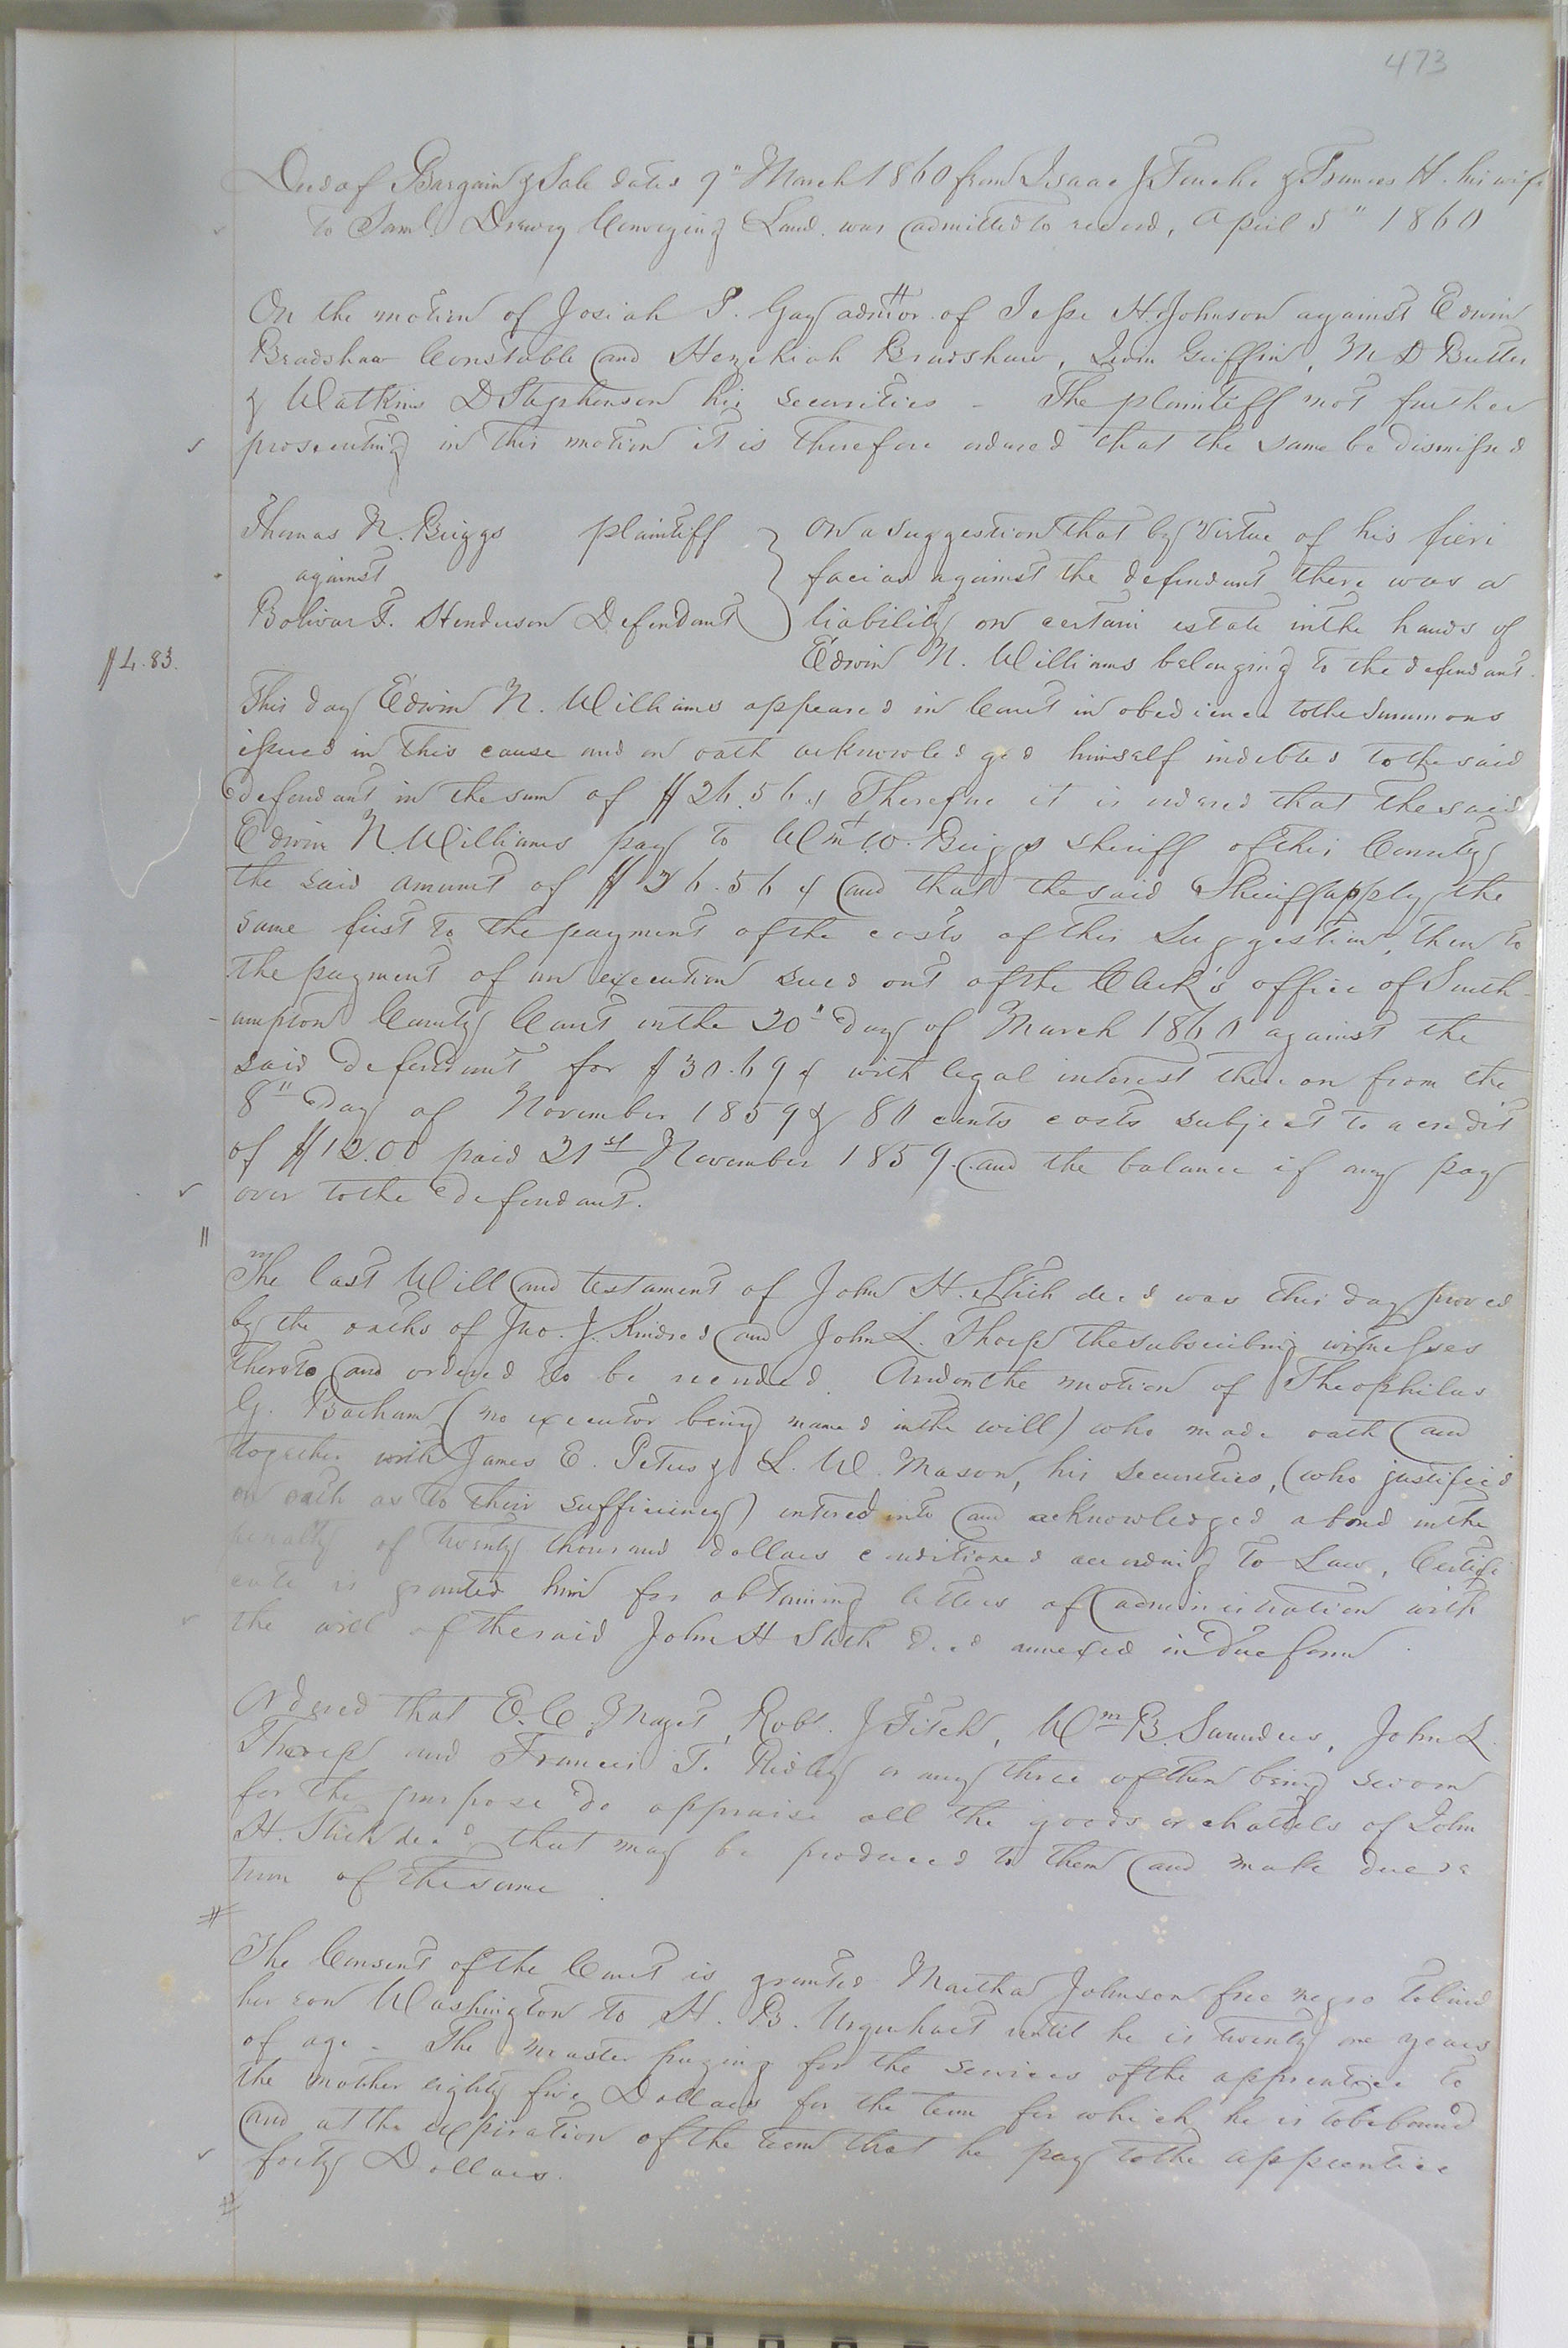 473
Deed of Bargain & Sale dated 9" March 1860 from Isaac J Fouche & Frances H. his wife
to Saml. Drewry Conveying Land. was admitted to record, April 5" 1860
On the motion of Josiah P. Gay admor of Jesse H. Johnson against Edwin
Bradshaw Constable and Hezekiah Bradshaw, Griffin, M D Butler
& Watkins D Stephenson his securities - The plaintiff not further
prosecuting in this motion it is therefore ordered that the same be dismissed
Thomas N. Briggs plaintiff On a suggestion that by virtue of his fieri
against facias against the defendant there was a
Bolivar F. Henderson Defendant liability on certain estate in the hands of
$4.83. Edwin N. Williams belonging to the defendant.
This day Edwin N. Williams appeared in Court in obedience to the summons
issued in this cause and on oath acknowledged himself indebted to the said
defendant in the sum of $26.56 ¢ Therefore it is ordered that the said
Edwin N. Williams pay to Wm. W. Briggs sheriff of this County
the said amount of $26.56 ¢ and that the said Sheriff apply the
same first to the payment of the costs of this suggestion, then to
the payment of an execution sued out of the Clerk's office of South-
ampton County Court on the 20" day of March 1860 against the
said defendant for $30.69 ¢ with legal interest thereon from the
8" day of November 1859 & 80 cents costs subject to a credit
of $12.00 paid 21st November 1859. and the balance if any pay
over to the defendant.
The last Will and testament of John H. Stith decd was this day proved
by the oaths of Jno. J. Kindred and John L. Thorp the subscribing witnesses
thereto and ordered to be recorded. And on the motion of Theophilus
G. Barham (no executor being named in the will) who made oath and
together with James E. Peters & L. W. Mason, his securities, (who justified
on oath as to their sufficiency) entered into and acknowledged a bond in the
penalty of twenty thousand dollars conditioned according to Law, Certifi
cate is granted him for obtaining letters of administration with
the will of the said John H Stith decd annexed in due form.
Ordered that E. C. Maget, Robt. J Fitch, Wm B. Saunders, John L.
Thorp and Francis T. Ridley or any three of them being sworn
for the purpose do appraise all the goods or chattels of John
H. Stith decd that may be produced to them and make due re
turn of the same.
The Consent of the Court is granted Martha Johnson free negro to bind
her son Washington to H. B. Urquhart until he is twenty one years
of age - The master paying for the services of the apprentice to
the mother eighty five Dollars for the term for which he is to be bound
and at the expiration of the term that he pay to the apprentice
forty Dollars.